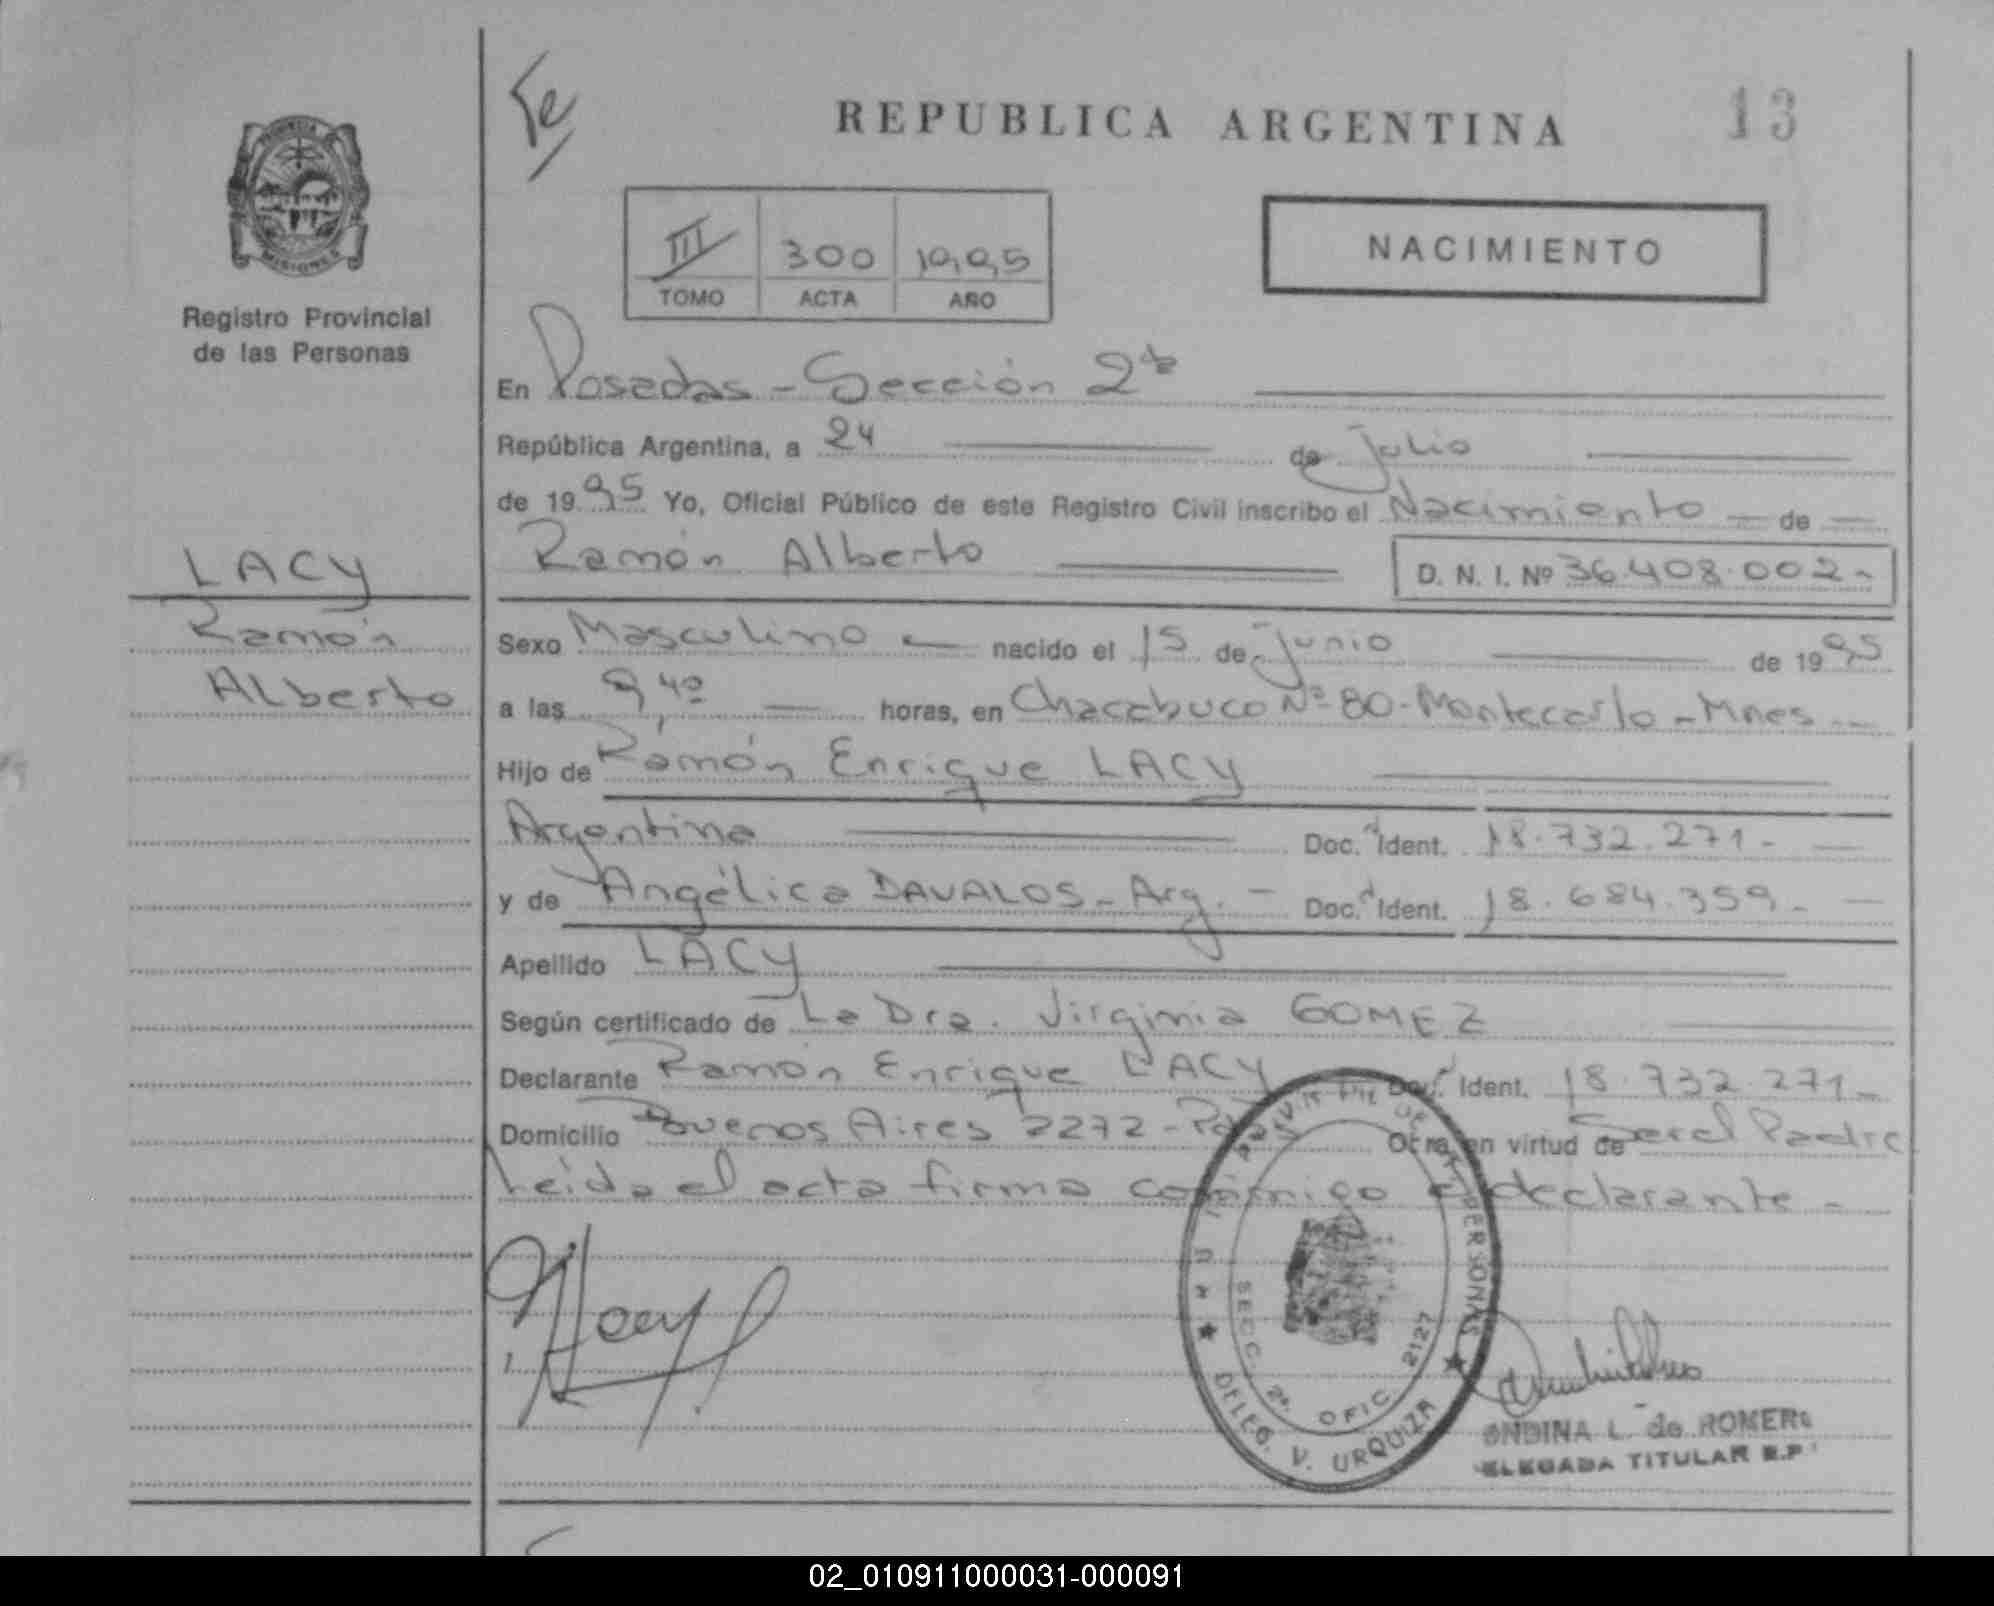 REPUBLICA ARGENTINA
13
PROVINCIA
MISIONES
Registro Provincial
de las Personas
III 300 1995
TOMO ACTA AÑO
NACIMIENTO
En Posadas - Sección 2ª
República Argentina, a 24 de Julio
de 1995 Yo, Oficial Público de este Registro Civil inscribo el Nacimiento - de -
Ramón Alberto
D. N. I. Nº 36.408.002-
LACY
Ramón
Alberto
Sexo Masculino nacido el 15 de Junio de 1995
a las 9,40 horas, en Chacabuco Nº 80 - Montecarlo - Mnes
Hijo de Ramón Enrique LACY
Argentina Doc. Ident. 18.732.271-
y de Angélica DAVALOS - Arg. - Doc. Ident. 18.684.359-
Apellido LACY
Según certificado de La Dra. Virginia GOMEZ
Declarante Ramón Enrique LACY Doc. Ident. 18.732.271-
Domicilio Buenos Aires 2272 - Obra en virtud de Ser el Padre
Leida el acta firma conmigo el declarante -
PERSONAS
SECC. 2ª. OFIC. 2127
DELEG. V. URQUIZA
ONDINA L. de ROMERO
DELEGADA TITULAR R.P.
02_010911000031-000091